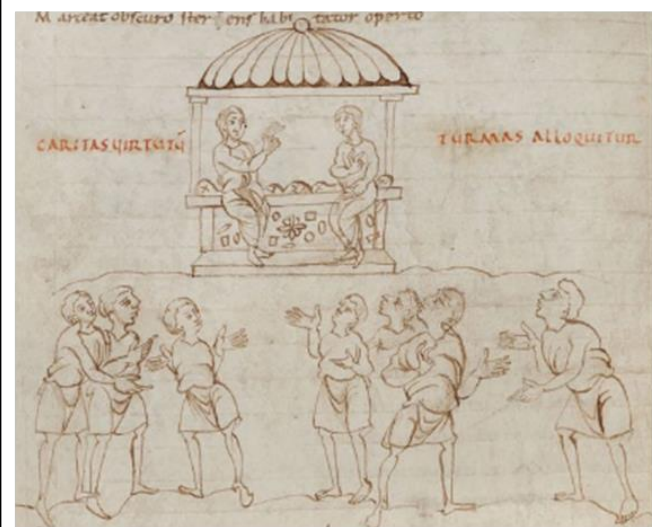 Marceat obscuro stercens habitator operto
CARITAS VIRTUTŪ TURMAS ALLOQUITUR